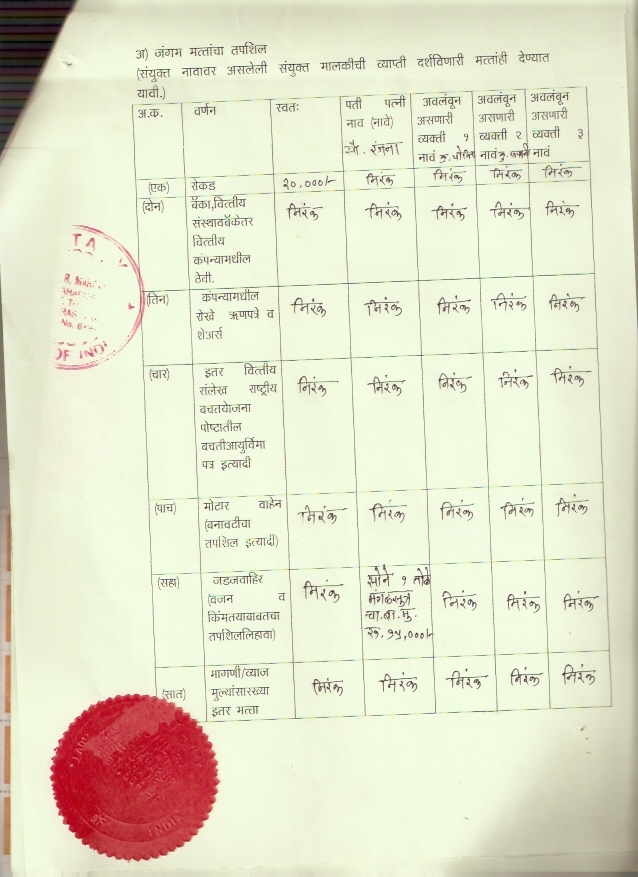 अ) जंगम मत्तांचा तपशिल
(संयुक्त नावावर असलेली संयुक्त मालकीची व्याप्ती दर्शविणारी मत्तांही देण्यात
यावी.)
अ.क. वर्णन स्वतः पती पत्नी नाव (नावे) सौ. रंजना अवलंबून असणारी व्यक्ती १ नावं कु. अवलंबून असणारी व्यक्ती २ नावं कु. अवलंबून असणारी व्यक्ती ३ नावं
(एक) रोकड २०,०००/- निरंक निरंक निरंक निरंक
(दोन) बॅका,वित्तीय निरंक निरंक निरंक निरंक निरंक
संस्थावबॅकेतर
वित्तीय
कंपन्यामधील
ठेवी.
(तिन) कंपन्यामधील निरंक निरंक निरंक निरंक निरंक
रोखे ऋणपत्रे व
शेअर्स
(चार) इतर वित्तीय निरंक निरंक निरंक निरंक निरंक
संलेख राष्ट्रीय
बचतयेाजना
पोष्टातील
बचतीआयुर्विमा
पत्र इत्यादी
(पाच) मोटार वाहेन निरंक निरंक निरंक निरंक निरंक
(बनावटीचा
तपशिल इत्यादी)
(सहा) जडजवाहिर निरंक सोने १ तोळे निरंक निरंक निरंक
(वजन व मंगळसूत्र
किंमतयाबाबतचा चा.बा.मु.
तपशिललिहावा) रू. १५,०००/-
मागणी/व्याज
(सात) मुल्यांसारख्या निरंक निरंक निरंक निरंक निरंक
इतर मत्ता
TA
R.
No.
OF INDI
INDIA